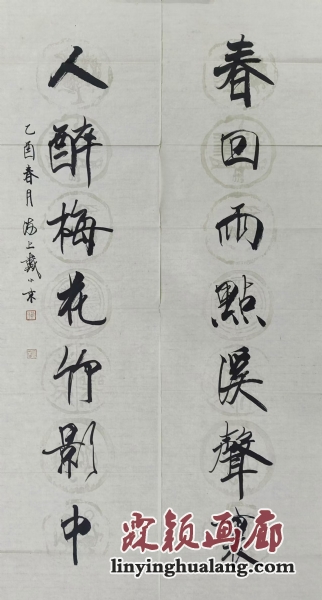 春回雨點溪聲裏
人醉梅花竹影中
乙酉春月 海上戴小京
霖颖画廊
linyinghualang.com